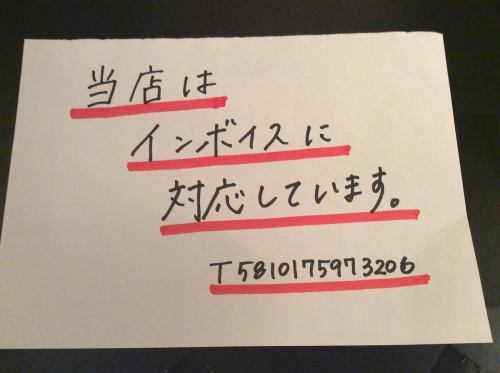 当店は
インボイスに
対応しています。
T5810175973206